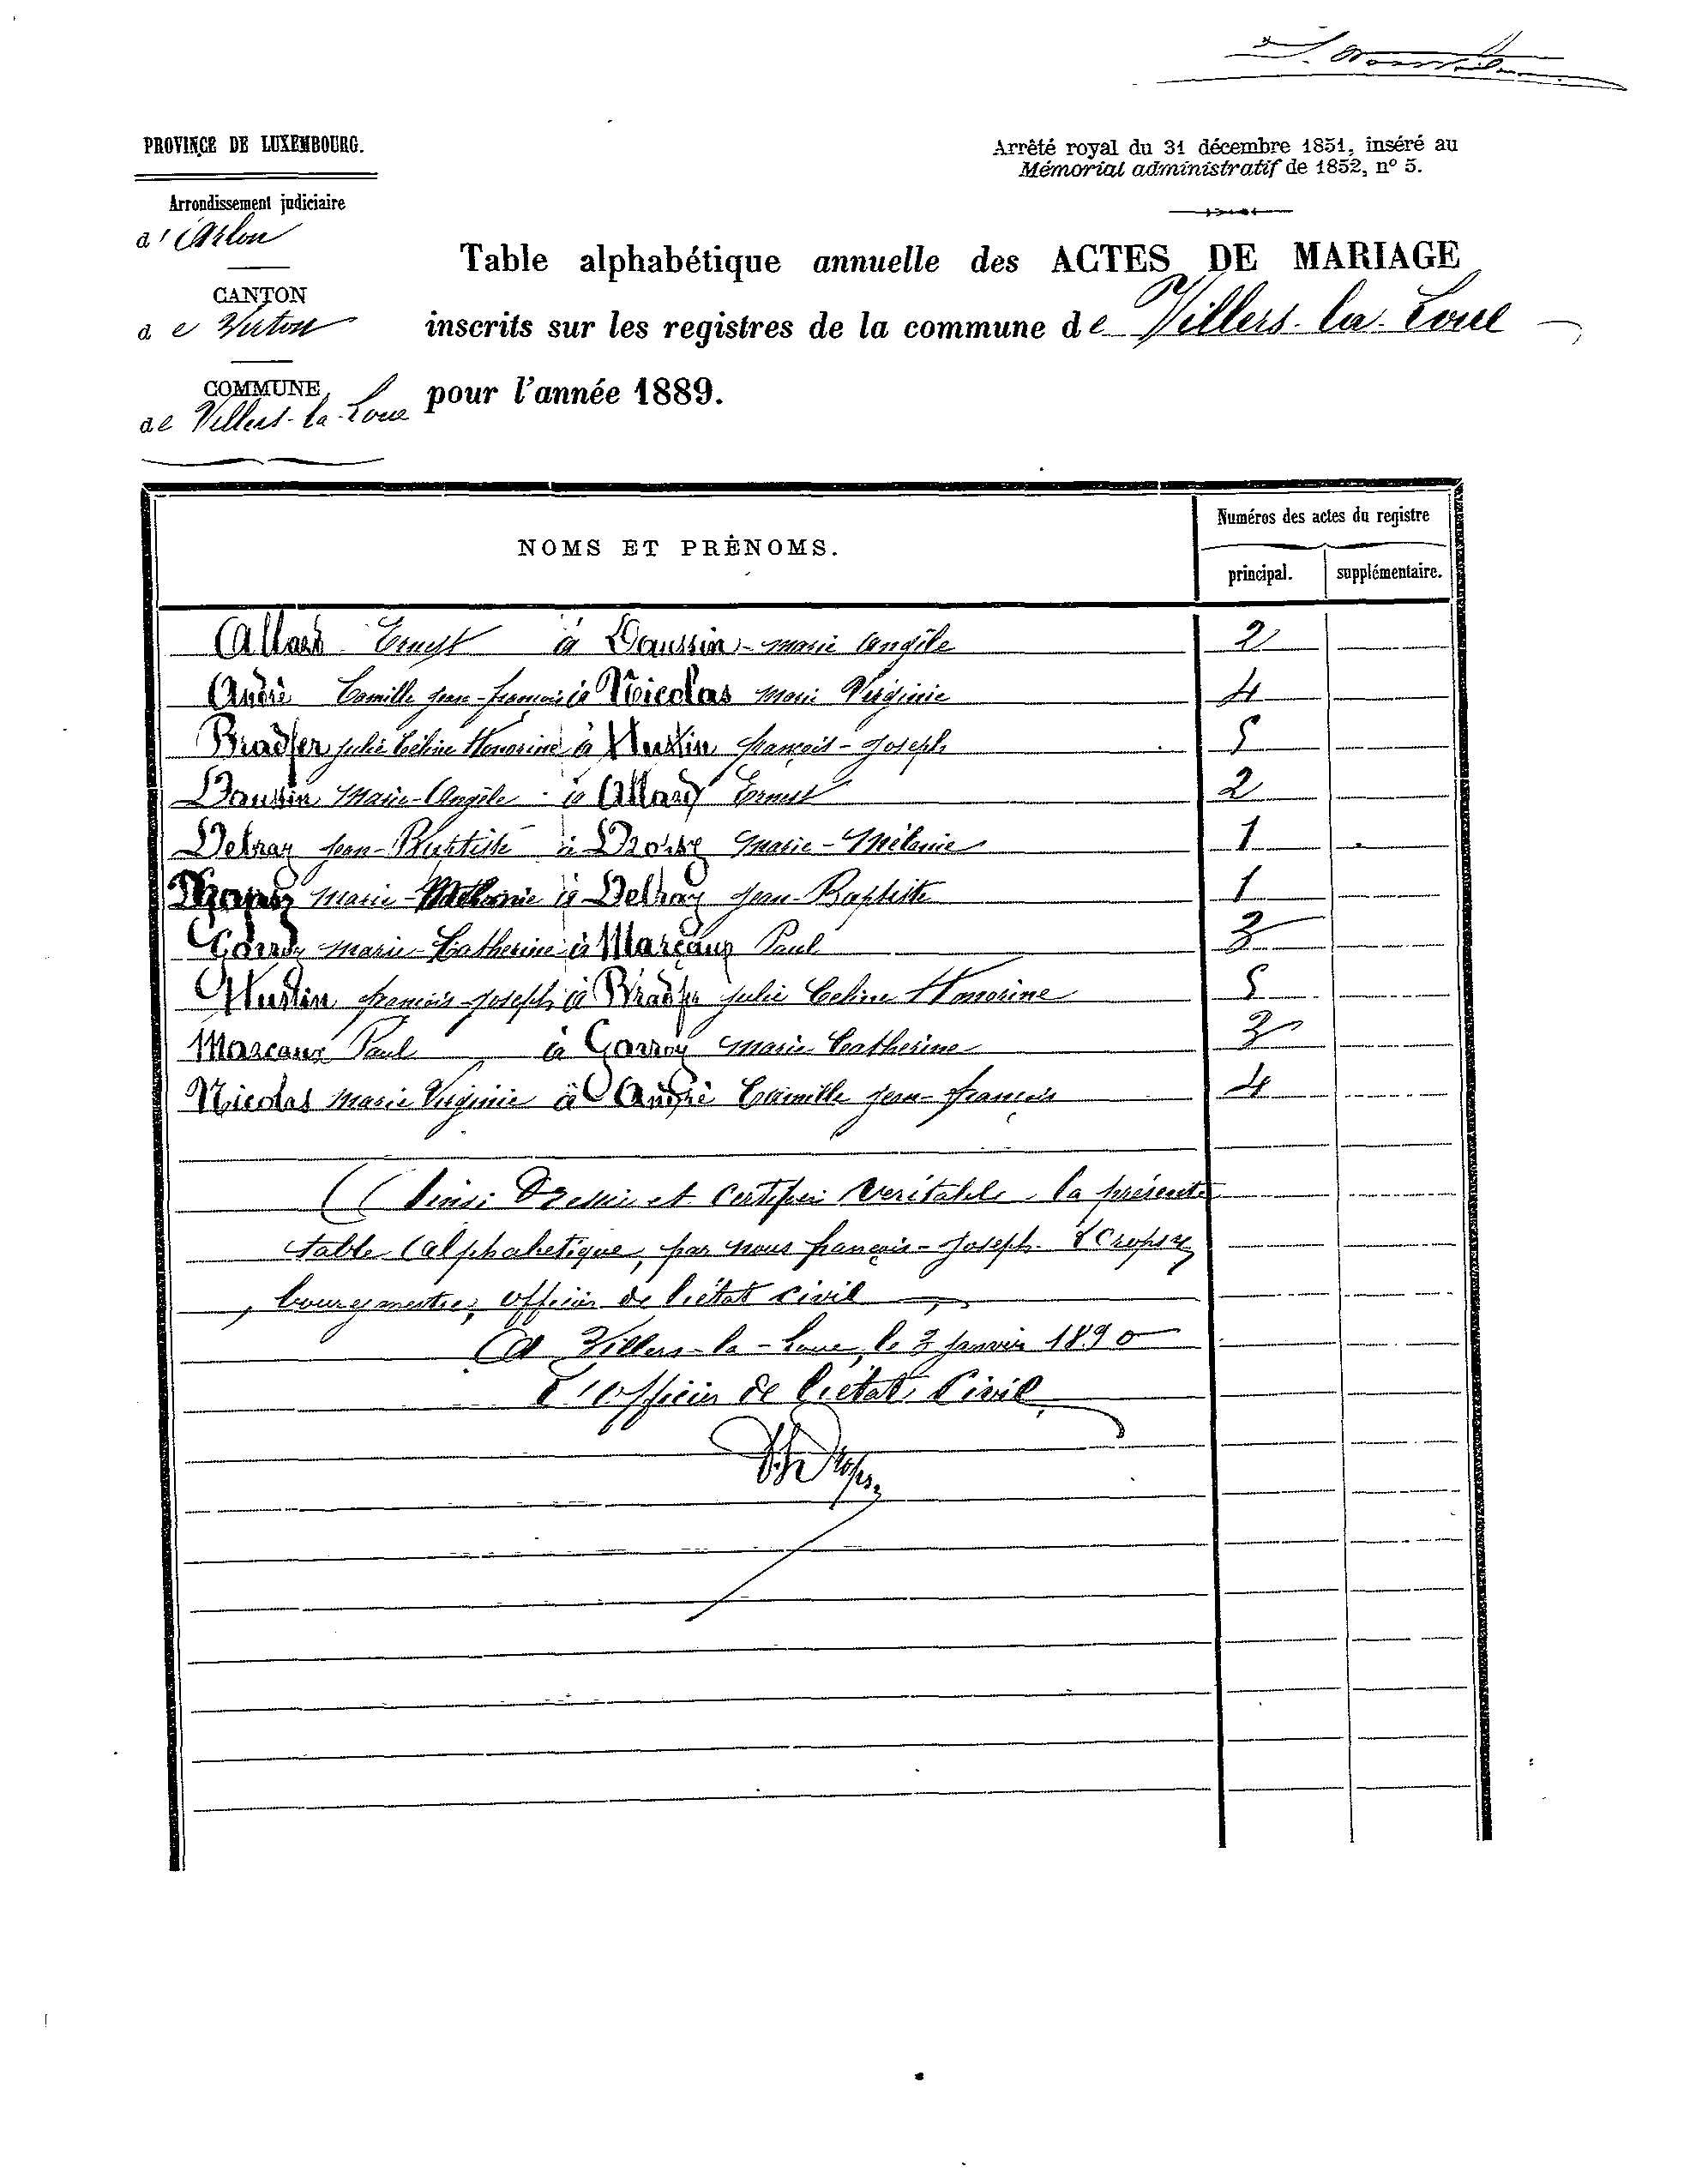 PROVINCE DE LUXEMBOURG.
Arrêté royal du 31 décembre 1851, inséré au
Mémorial administratif de 1852, nº 5.
Arrondissement judiciaire
d'Arlon
CANTON
de Virton
COMMUNE
de Villers-la-Loue
Table alphabétique annuelle des ACTES DE MARIAGE
inscrits sur les registres de la commune de Villers-la-Loue
pour l'année 1889.
NOMS ET PRÉNOMS.
Numéros des actes du registre
principal. supplémentaire.
Allard Ernest à Daussin - marie Angèle 2
André Camille jean-françois à Nicolas marie Virginie 4
Bradfer julie Céline Honorine à Hustin françois-joseph 5
Daussin Marie-Angèle à Allard Ernest 2
Delray jean-Baptiste à marie-Mélanie 1
marie-Mélanie à Delray jean-Baptiste 1
Garroy marie-Catherine à Marçaux Paul 3
Hustin françois-joseph à Bradfer julie Celine Honorine 5
Marcaux Paul à Garroy marie-Catherine 3
Nicolas marie Virginie à André Camille jean-françois 4
Ainsi Dressée et Certifiée veritable la présente
table Alphabetique, par nous françois-joseph
bourgmestre, officier de l'état civil
A Villers-la-Loue, le 3 janvier 1890
L'officier de l'état Civil